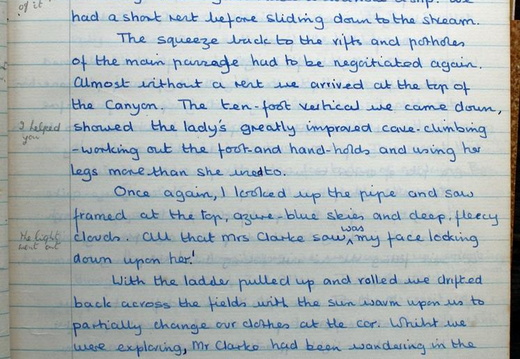 of it
had a short rest before sliding down to the stream.
The squeeze back to the rifts and potholes
of the main passage had to be negotiated again.
Almost without a rest we arrived at the top of
the Canyon. The ten-foot vertical we came down,
I helped
you
showed the lady's greatly improved cave-climbing
-working out the foot-and hand-holds and using her
legs more than she used to.
Once again, I looked up the pipe and saw
framed at the top, azure-blue skies and deep, fleecy
He light
went out
clouds. All that Mrs Clarke saw was my face looking
down upon her!
With the ladder pulled up and rolled we drifted
back across the fields with the sun warm upon us to
partially change our clothes at the car. Whilst we
were exploring, Mr Clarke had been wandering in the